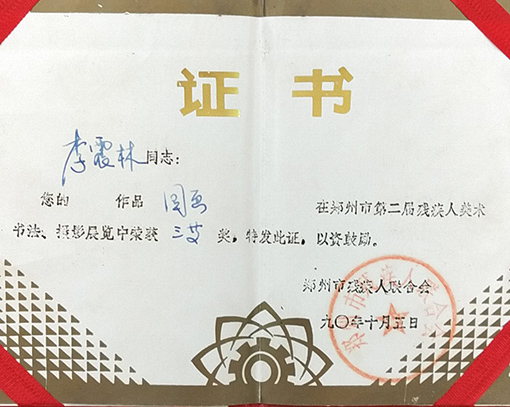 证书
李霞林同志:
您的 作品 国画 在郑州市第二届残疾人美术
书法、摄影展览中荣获 三等 奖,特发此证,以资鼓励。
郑州市残疾人联合会
九〇年十月五日
郑州市残疾人联合会